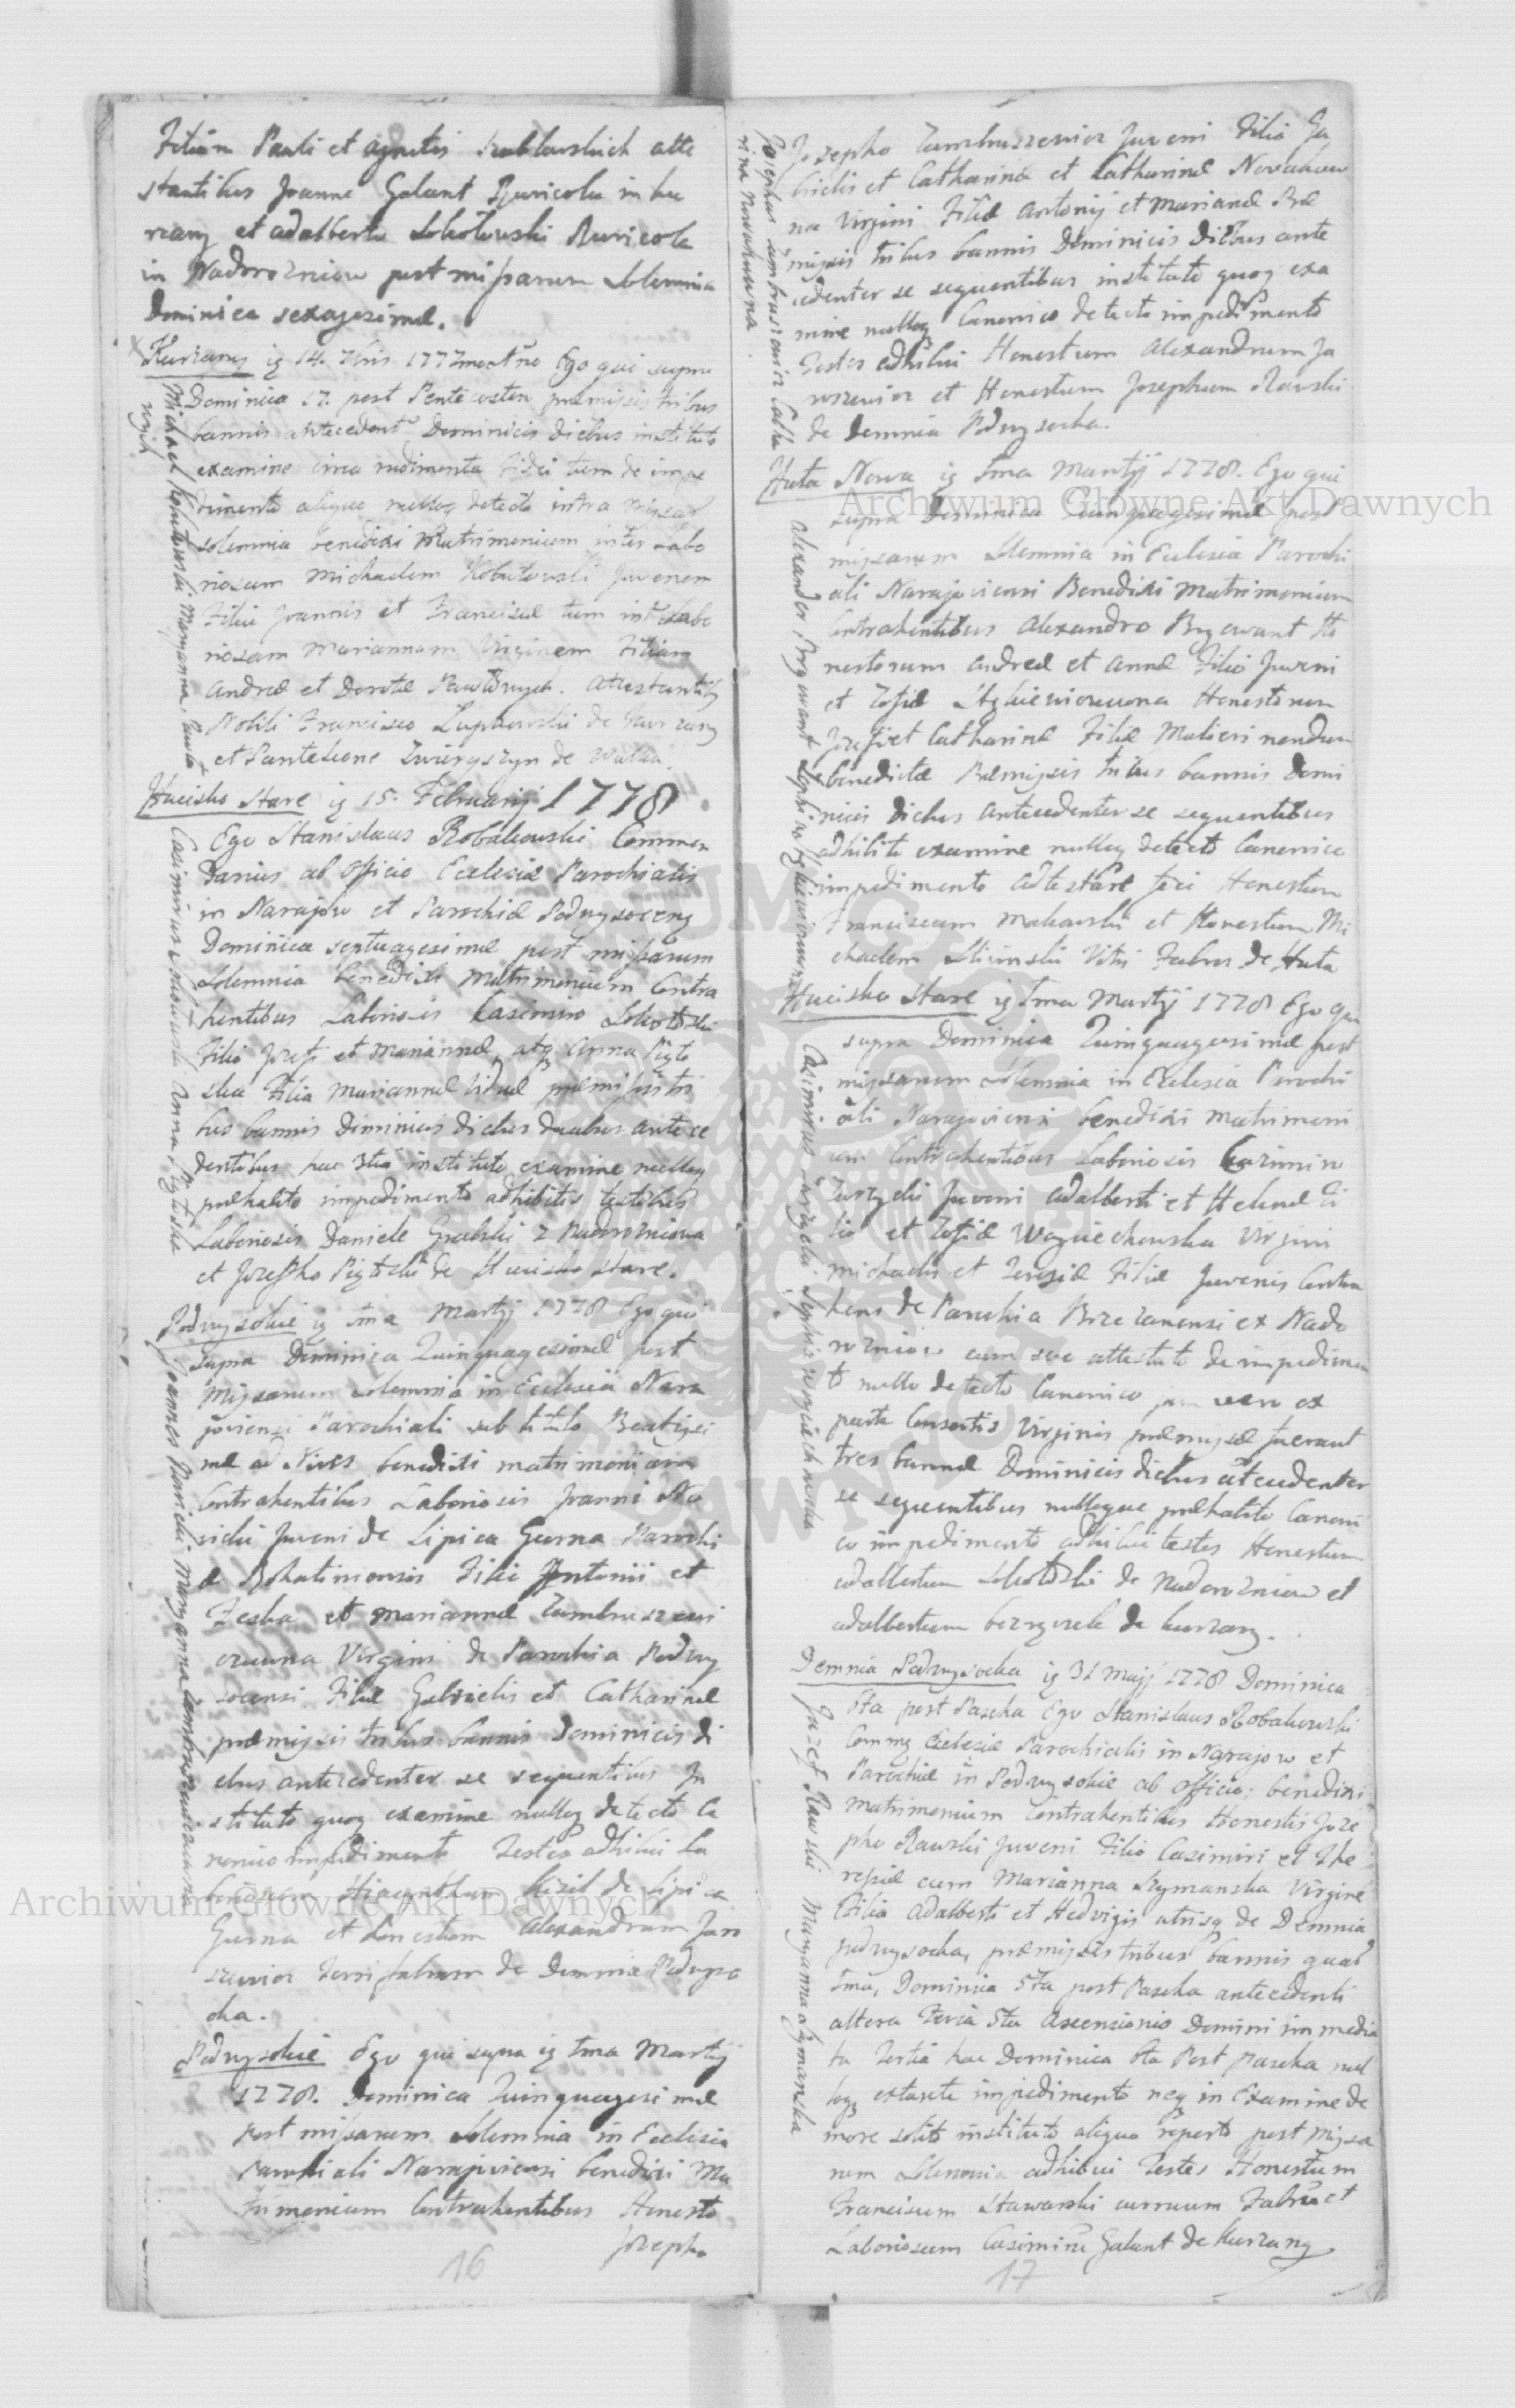 Filiam Pauli et Agnetis
stantibus Joanne Galant Ruricola in Ku
rzany et Adalberto Sokołowski Ruricola
in Nadorożniow post missarum Solemnia
Dominica sexagesimæ.
Kurzany ig 14. 7bris 1777 Ego qui supra
Dominica 17. post Pentecosten præmissis tribus
bannis antecedent Dominicis diebus instituto
examine circa rudimenta Fidei tum de impe
dimento aliquo nulloq detecto intra Missar
Solemnia benedixi Matrimonium inter Labo
riosum Michaelem Kobutowski Juvenem
Filiu Joannis et Franciscæ tum inter Labo
riosam Mariannam Virginem Filiam
Andreæ et Dorotæ Pawłowych. Attestantib
Nobili Francisco Łupkowski de Kurzany
et Pantelione de
Michael Kobutowski Maryanna
Hucisko Stare ig 15. Februarij 1778
Ego Stanislaus Robakowski Commen
darius ab Officio Ecclesiæ Parochialis
in Narajow et Parochiæ Podwysoceny
Dominica septuagesimæ post missarum
Solemnia benedixi Matrimonium Contra
hentibus Laboriosis Casimiro
Filio Jozefi et Mariannæ, atq Anna Pięto
ska Filia Mariannæ Viduæ præmissis tri
bus bannis Dominicis diebus duabus antece
dentibus hac 3tia instituto examine nulloq
præhabito impedimento adhibitis testibus
Laboriosis Daniele Grabski z Nadorozniowa
et Josepho de Hucisko Stare.
Casimirus Anna
Podwysokie ig 1ma Martij 1778 Ego qui
supra Dominica Quinquagesimæ post
Missarum Solemnia in Ecclesia Nara
joviensi Parochiali sub titulo Beatissi
mæ ad Nives benedixi matrimonium
Contrahentibus Laboriosis Joanni No
sicki Juveni de Lipica Gurna Parochi
æ Rohatinensis Filii Antonii et
et Mariannæ Zambruszewi
czowna Virgini de Parochia Podwy
socensi Filiæ Gabrielis et Catharinæ
præmissis tribus bannis Dominicis di
ebus antecedenter se sequentibus In
stituto quoq examine nulloq detecto Ca
nonico impedimento Testes adhibui La
boriosum Hiacynthum de Lipica
Gurna et Honestum Alexandrum Jaro
szewicz Ferrifabrum de Demnia Podwyso
cka.
Joannes Maryanna
Podwysokie Ego qui supra ig 1ma Martij
1778. Dominica Quinquagesimæ
post missarum Solemnia in Ecclesia
Parochiali Narajoviensi benedixi Ma
trimonium Contrahentibus Honesto
Josepho
16
Josepho Zambruszewicz Juveni Filio Ga
brielis et Catharinæ et Catharinæ Novakow
na Virgini Filiæ Antonij et Mariannæ Præ
missis tribus bannis Dominicis Diebus ante
cedenter se sequentibus instituto quoq exa
mine nulloq Canonico detecto impedimento
Testes adhibui Honestum Alexandrum Ja
roszewicz et Honestum Josephum Rawski
de Demnia Podwysocka.
Josephus Zambruszewicz Catha
rina Nowakowna
Huta Nowa ig 1ma Martij 1778. Ego qui
supra Dominica Quinquagesimæ post
missarum Solemnia in Ecclesia Parochi
ali Narajoviensi Benedixi Matrimonium
Contrahentibus Alexandro Brygwant Ho
nestorum Andreæ et Annæ Filio Juveni
et Zofiæ Honestorum
Josefi et Catharinæ Filiæ Mulieri nondum
benedictæ Præmissis tribus bannis Domi
nicis diebus antecedenter se sequentibus
adhibito examine nulloq detecto Canonico
impedimento Adtestare feci Honestum
Franciscum Makowski et Honestum Mi
chaelem Vitri Fabros de Huta
Alexander Brygwant Sophia
Hucisko Stare ig 1ma Martij 1778 Ego qui
supra Dominica Quinquagesimæ post
missarum Solemnia in Ecclesia Parochi
ali Narajoviensi benedixi Matrimoni
um Contrahentibus Laboriosis Cazimiro
Juveni Adalberti et Helenæ Fi
lio et Zofiæ Woyciechowska Virgini
Michaelis et Teresiæ Filiæ Juvenis Contra
hens de Parochia Brzezanensi ex Nado
rozniow cum suo attestato de impedimen
to nullo detecto Canonico vero ex
parte Consortis Virginis præmissæ fuerant
tres bannæ Dominicis diebus antecedenter
se sequentibus nulloque præhabito Canoni
co impedimento adhibui testes Honestum
Adalbertum de Nadorozniow et
Adalbertum de Kurzany.
Casimirus Sophia Woyciechowska
Demnia Podwysocka ig 31 Maij 1778 Dominica
6ta post Pascha Ego Stanislaus Robakowski
Comms Ecclesiæ Parochialis in Narajow et
Parochiæ in Podwysokie ab Officio; benedixi
matrimonium Contrahentibus Honestis Joze
pho Rawski Juveni Filio Casimiri et The
resiæ cum Marianna Szymanska Virgine
Filia Adalberti et Hedvigis utrisq de Demnia
podwysocka, præmissis tribus bannis
1ma, Dominica 5ta post Pascha antecedenti
altera Feria 5ta Ascensionis Domini immedia
ta Tertia hac Dominica 6ta Post Pascha nul
loq extante impedimento neq in Examine de
more solito instituto aliquo reperto post Missa
rum Solemnia adhibui Testes Honestum
Franciscum Stawarski curruum Fabru et
Laboriosum Casimiru Galant de Kurzany
Jozef Rawski Maryanna Szymanska
17
Archiwum Główne Akt Dawnych
Archiwum Główne Akt Dawnych